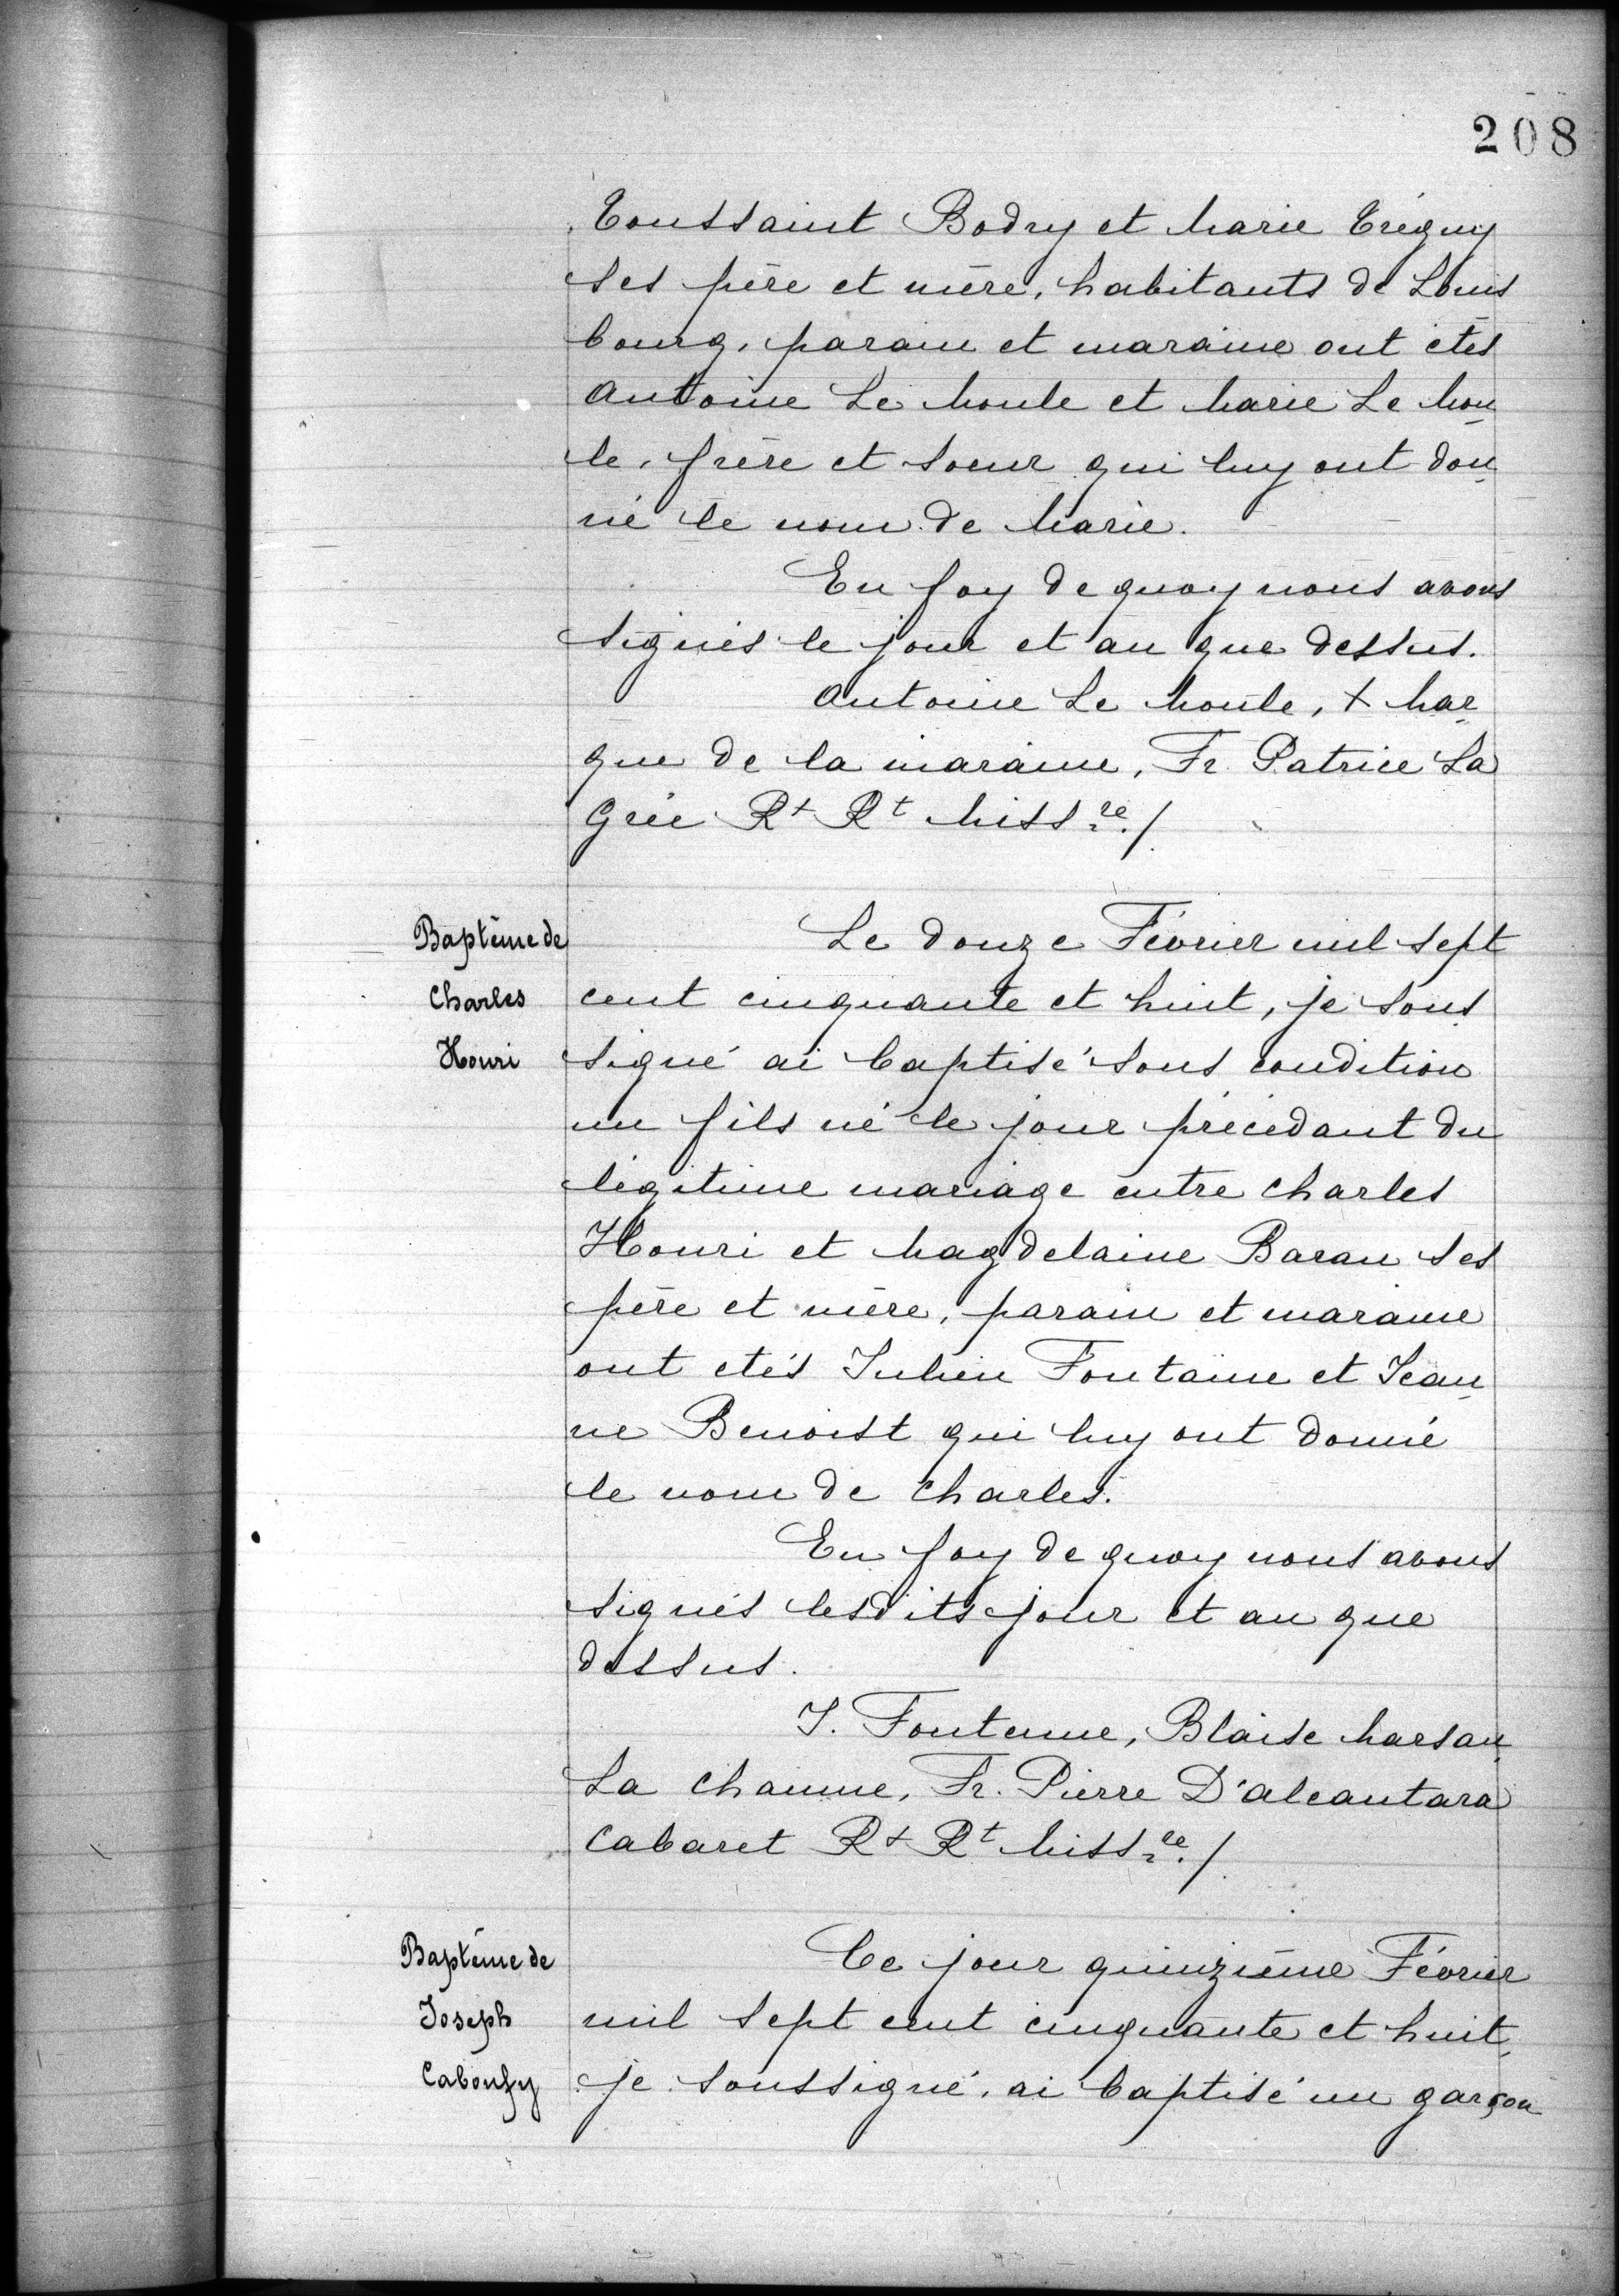 208
Toussaint Bodry et Marie Tréguy
ses père et mère, habitants de Louis
bourg, parain et maraine ont étés
Antoine Le Moule et Marie Le Mou
le, frère et soeur qui luy ont don
né le nom de Marie.
En foy de quoy nous avons
signés le jour et an que dessus.
Antoine Le Moule, + Mar
que de la maraine, Fr. Patrice La
Grée Rt Rt Missre./
Baptême de
Charles
Houri
Le douze Février mil sept
cent cinquante et huit, je sous
signé ai baptisé sous condition
un fils né le jour précédant du
légitime mariage entre Charles
Houri et Magdelaine Baran ses
père et mère, parain et maraine
ont étés Julien Fontaine et Jean
ne Benoist qui luy ont donné
le nom de Charles.
En foy de quoy nous avons
signés lesdits jour et an que
dessus.
J. Fontenne, Blaise Marsan
La Chaume, Fr. Pierre D'Alcantara
Cabaret Rt Rt Missre./
Baptême de
Joseph
Ce jour quinzième Février
mil sept cent cinquante et huit
je soussigné, ai baptisé un garçon